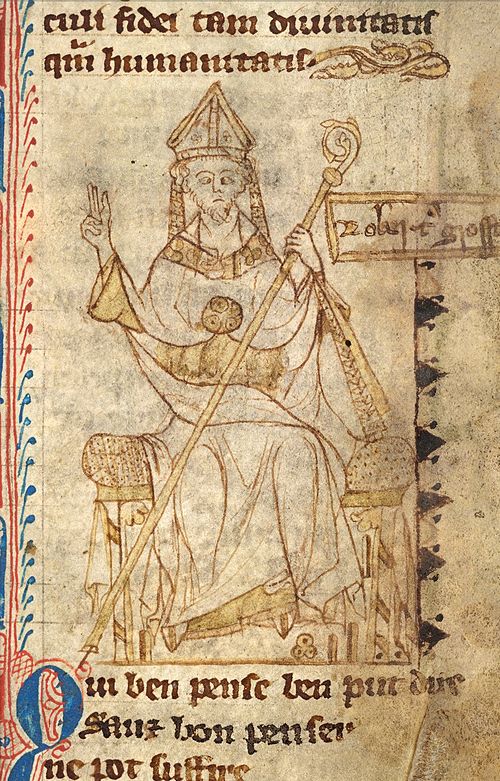 culi fidei tam diuinitatis
qm̄ humanitatis.
Robert grosst
Qui ben pense ben put dire
Sanz bon penser
ne pot suffire